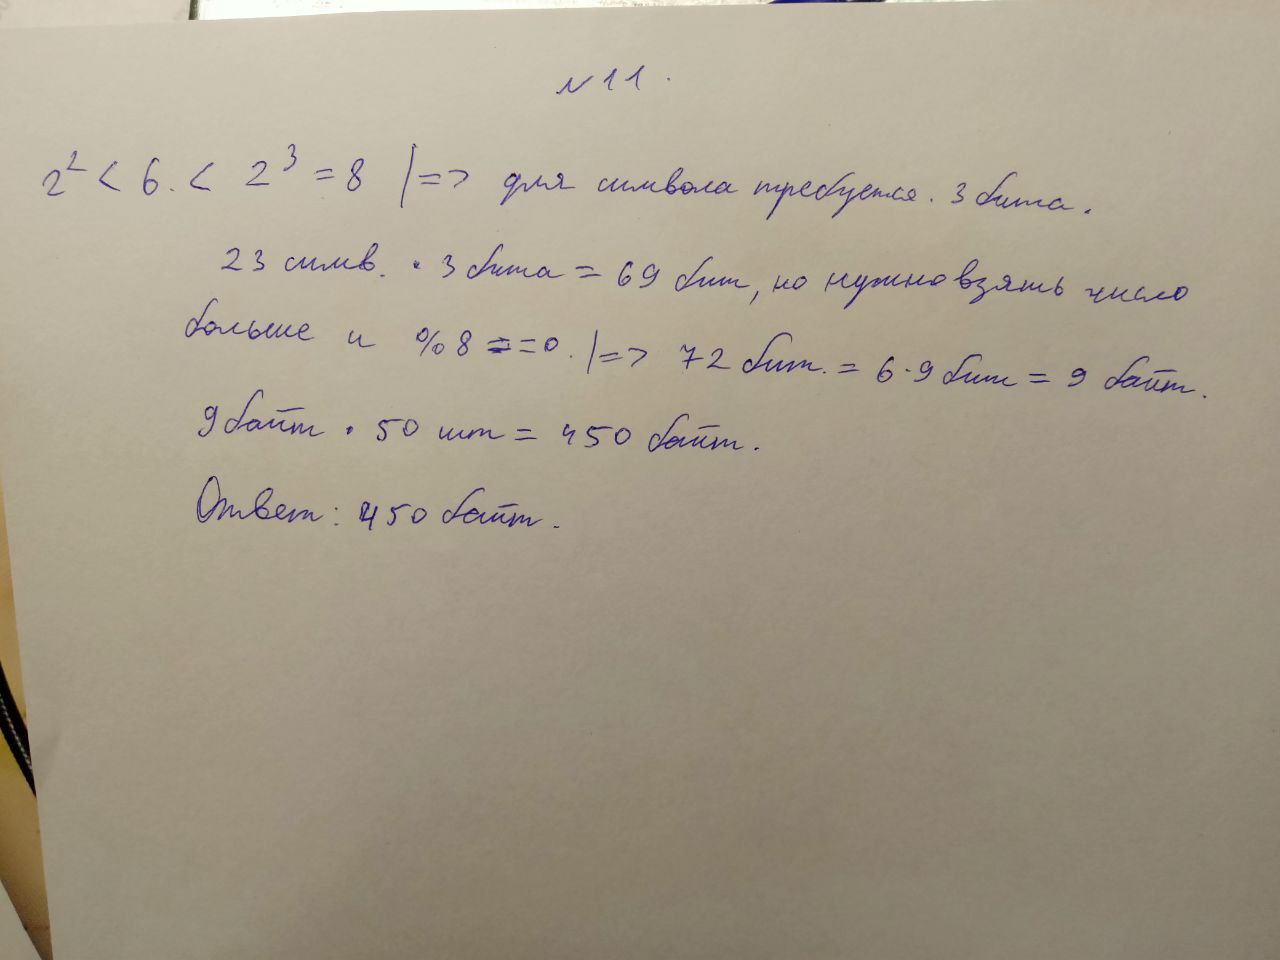 N11.
2² < 6. < 2³ = 8 |=> для символа требуется. 3 бита.
23 симв. · 3 бита = 69 бит, но нужно взять число
больше и %8 ==0. |=> 72 бит. = 6·9 бит = 9 байт.
9 байт · 50 шт = 450 байт.
Ответ: 450 байт.